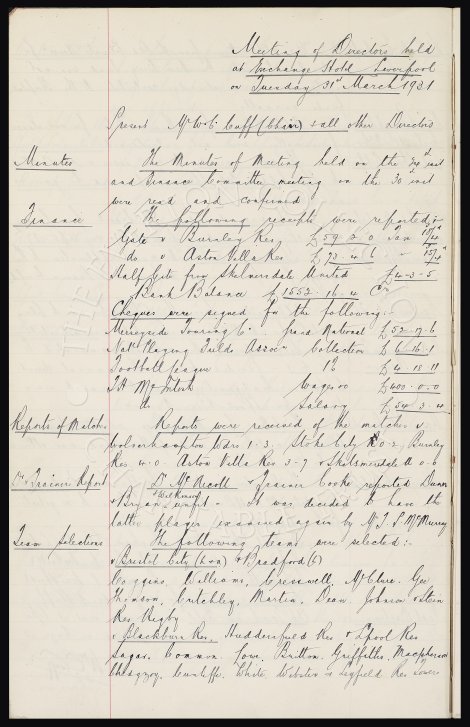 Meeting of Directors held
at Exchange Hotel Liverpool
on Tuesday 31st March 1931
Present Mr W.C. Cuff (Chair) & all other Directors
Minutes
The Minutes of Meeting held on the inst
and Finance Committee meeting on the 30th inst
were read and confirmed
Finance
The following receipts were reported:-
Gate v Burnley Res £59 2 0 Tax
do v Aston Villa Res £73 4 6
Half Gate from Skelmersdale United £4-3-5
Bank Balance £1552-16-4 Cr
Cheques were signed for the following:-
Merseyside Touring Co Grand National £52-17-6
Natl Playing Fields Assocn Collection £6-16-1
Football League £4-15-11
T.H. McIntosh Wages £400-0-0
do Salary £54-3-4
Reports of Matches
Reports were received of the matches v
Wolverhampton Wdrs 1-3, Stoke City 0-2, Burnley
Res 4-0 Aston Villa Res 3-7 & Skelmersdale U 0-6
Dr & Trainer Report
Dr McArdle & Trainer Cooke reported Dunn
& Bryan Unfit - It was decided to have the
latter player examined again by Mr T.P. McMurray
Team Selections
The following teams were selected:-
v Bristol City (Mon) & Bradford (S)
Coggins, Williams, Cresswell, McClure, Gee,
Thomson, Critchley, Martin, Dean, Johnson & Stein
Res Rigby
v Blackburn Res, Huddersfield Res & L'pool Res
Sagar, Common, Lowe, Britton, Griffiths, Macpherson
Chedgzoy, Cunliffe, White, Webster & Leyfield Res